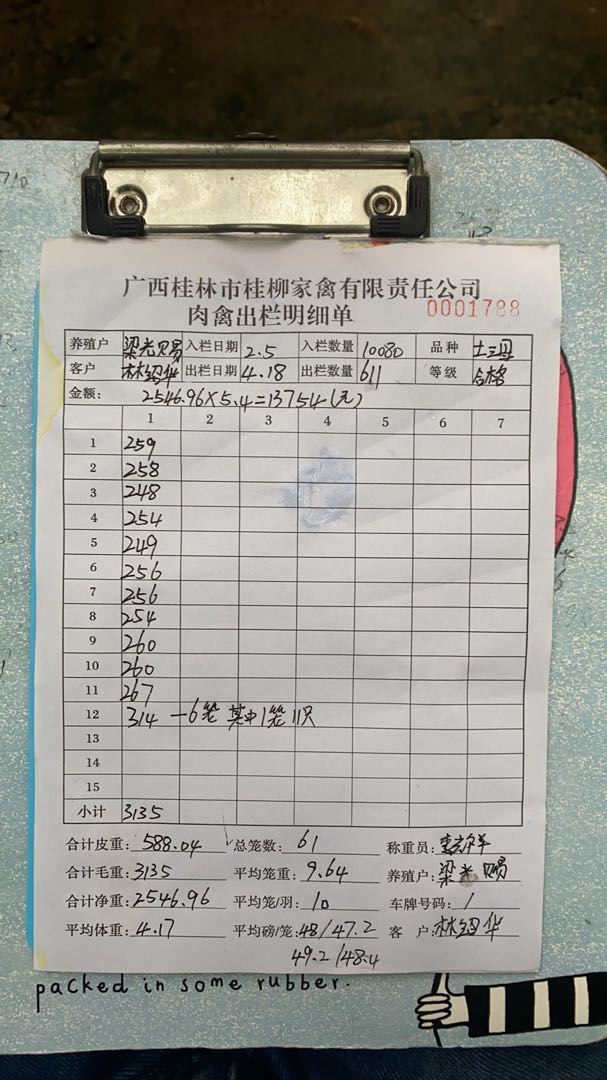 广西桂林市桂柳家禽有限责任公司
肉禽出栏明细单 0001788
养殖户 梁光赐 入栏日期 2.5 入栏数量 10080 品种 土三母
客户 林绍华 出栏日期 4.18 出栏数量 611 等级 合格
金额: 2546.96×5.4=13754(元)
1 2 3 4 5 6 7
1 259
2 258
3 248
4 254
5 249
6 256
7 256
8 254
9 260
10 260
11 267
12 314 —6笼 其中1笼11只
13
14
15
小计 3135
合计皮重: 588.04 总笼数: 61 称重员:
合计毛重: 3135 平均笼重: 9.64 养殖户: 梁光赐
合计净重: 2546.96 平均笼/羽: 10 车牌号码: /
平均体重: 4.17 平均磅/笼: 48/47.2 客 户: 林绍华
49.2/48.4
packed in some rubber.